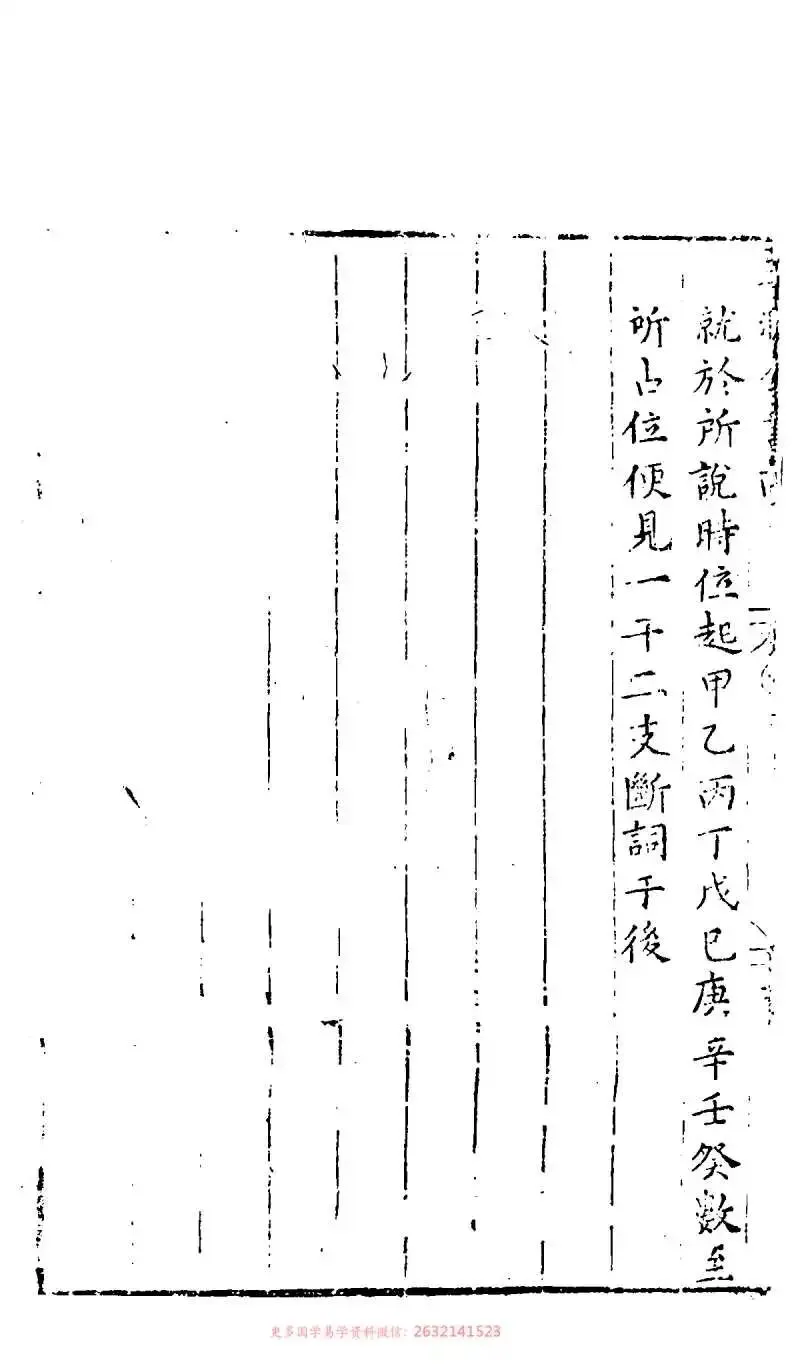 就於所說時位起甲乙丙丁戊巳庚辛壬癸數至
所占位便見一干二支斷詞于後
更多国学易学资料微信: 2632141523